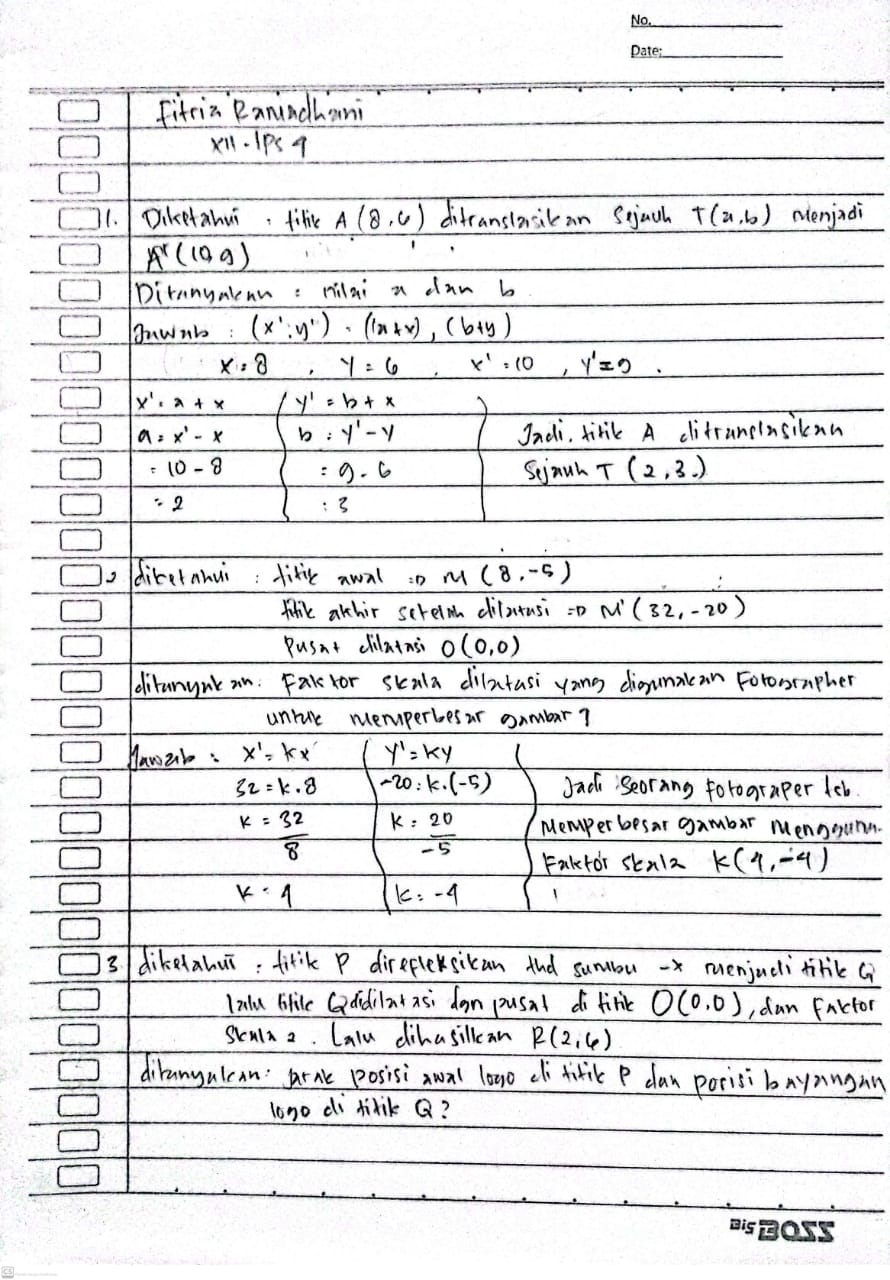 No.
Date:
Fitria Ramadhani
XII - IPS 4
1. Diketahui : titik A (8,6) ditranslasikan sejauh T(a,b) menjadi
A'(10,9)
Ditanyakan : nilai a dan b
Jawab : (x';y') = (a+x), (b+y)
x = 8 , y = 6 , x' = 10 , y' = 9 .
x' = a + x y' = b + x
a = x' - x b = y' - y Jadi, titik A ditranslasikan
= 10 - 8 = 9 - 6 sejauh T (2,3)
= 2 = 3
2 diketahui : titik awal => M (8,-5)
titik akhir setelah dilatasi => M' (32,-20)
Pusat dilatasi O(0,0)
ditanyakan : Faktor skala dilatasi yang digunakan Fotographer
untuk memperbesar gambar ?
Jawab : x' = kx y' = ky
32 = k.8 -20 = k.(-5) Jadi seorang fotograper tsb
k = 32 k = 20 memperbesar gambar menggunn.
8 -5 Faktor skala k(4,-4)
k = 4 k = -4
3 diketahui : titik P direfleksikan thd sumbu -x menjadi titik Q
lalu titik Q didilatasi dgn pusat di titik O(0,0), dan faktor
skala 2 . Lalu dihasilkan R(2,6)
ditanyakan : jarak posisi awal logo di titik P dan posisi bayangan
logo di titik Q ?
Big BOSS
CS